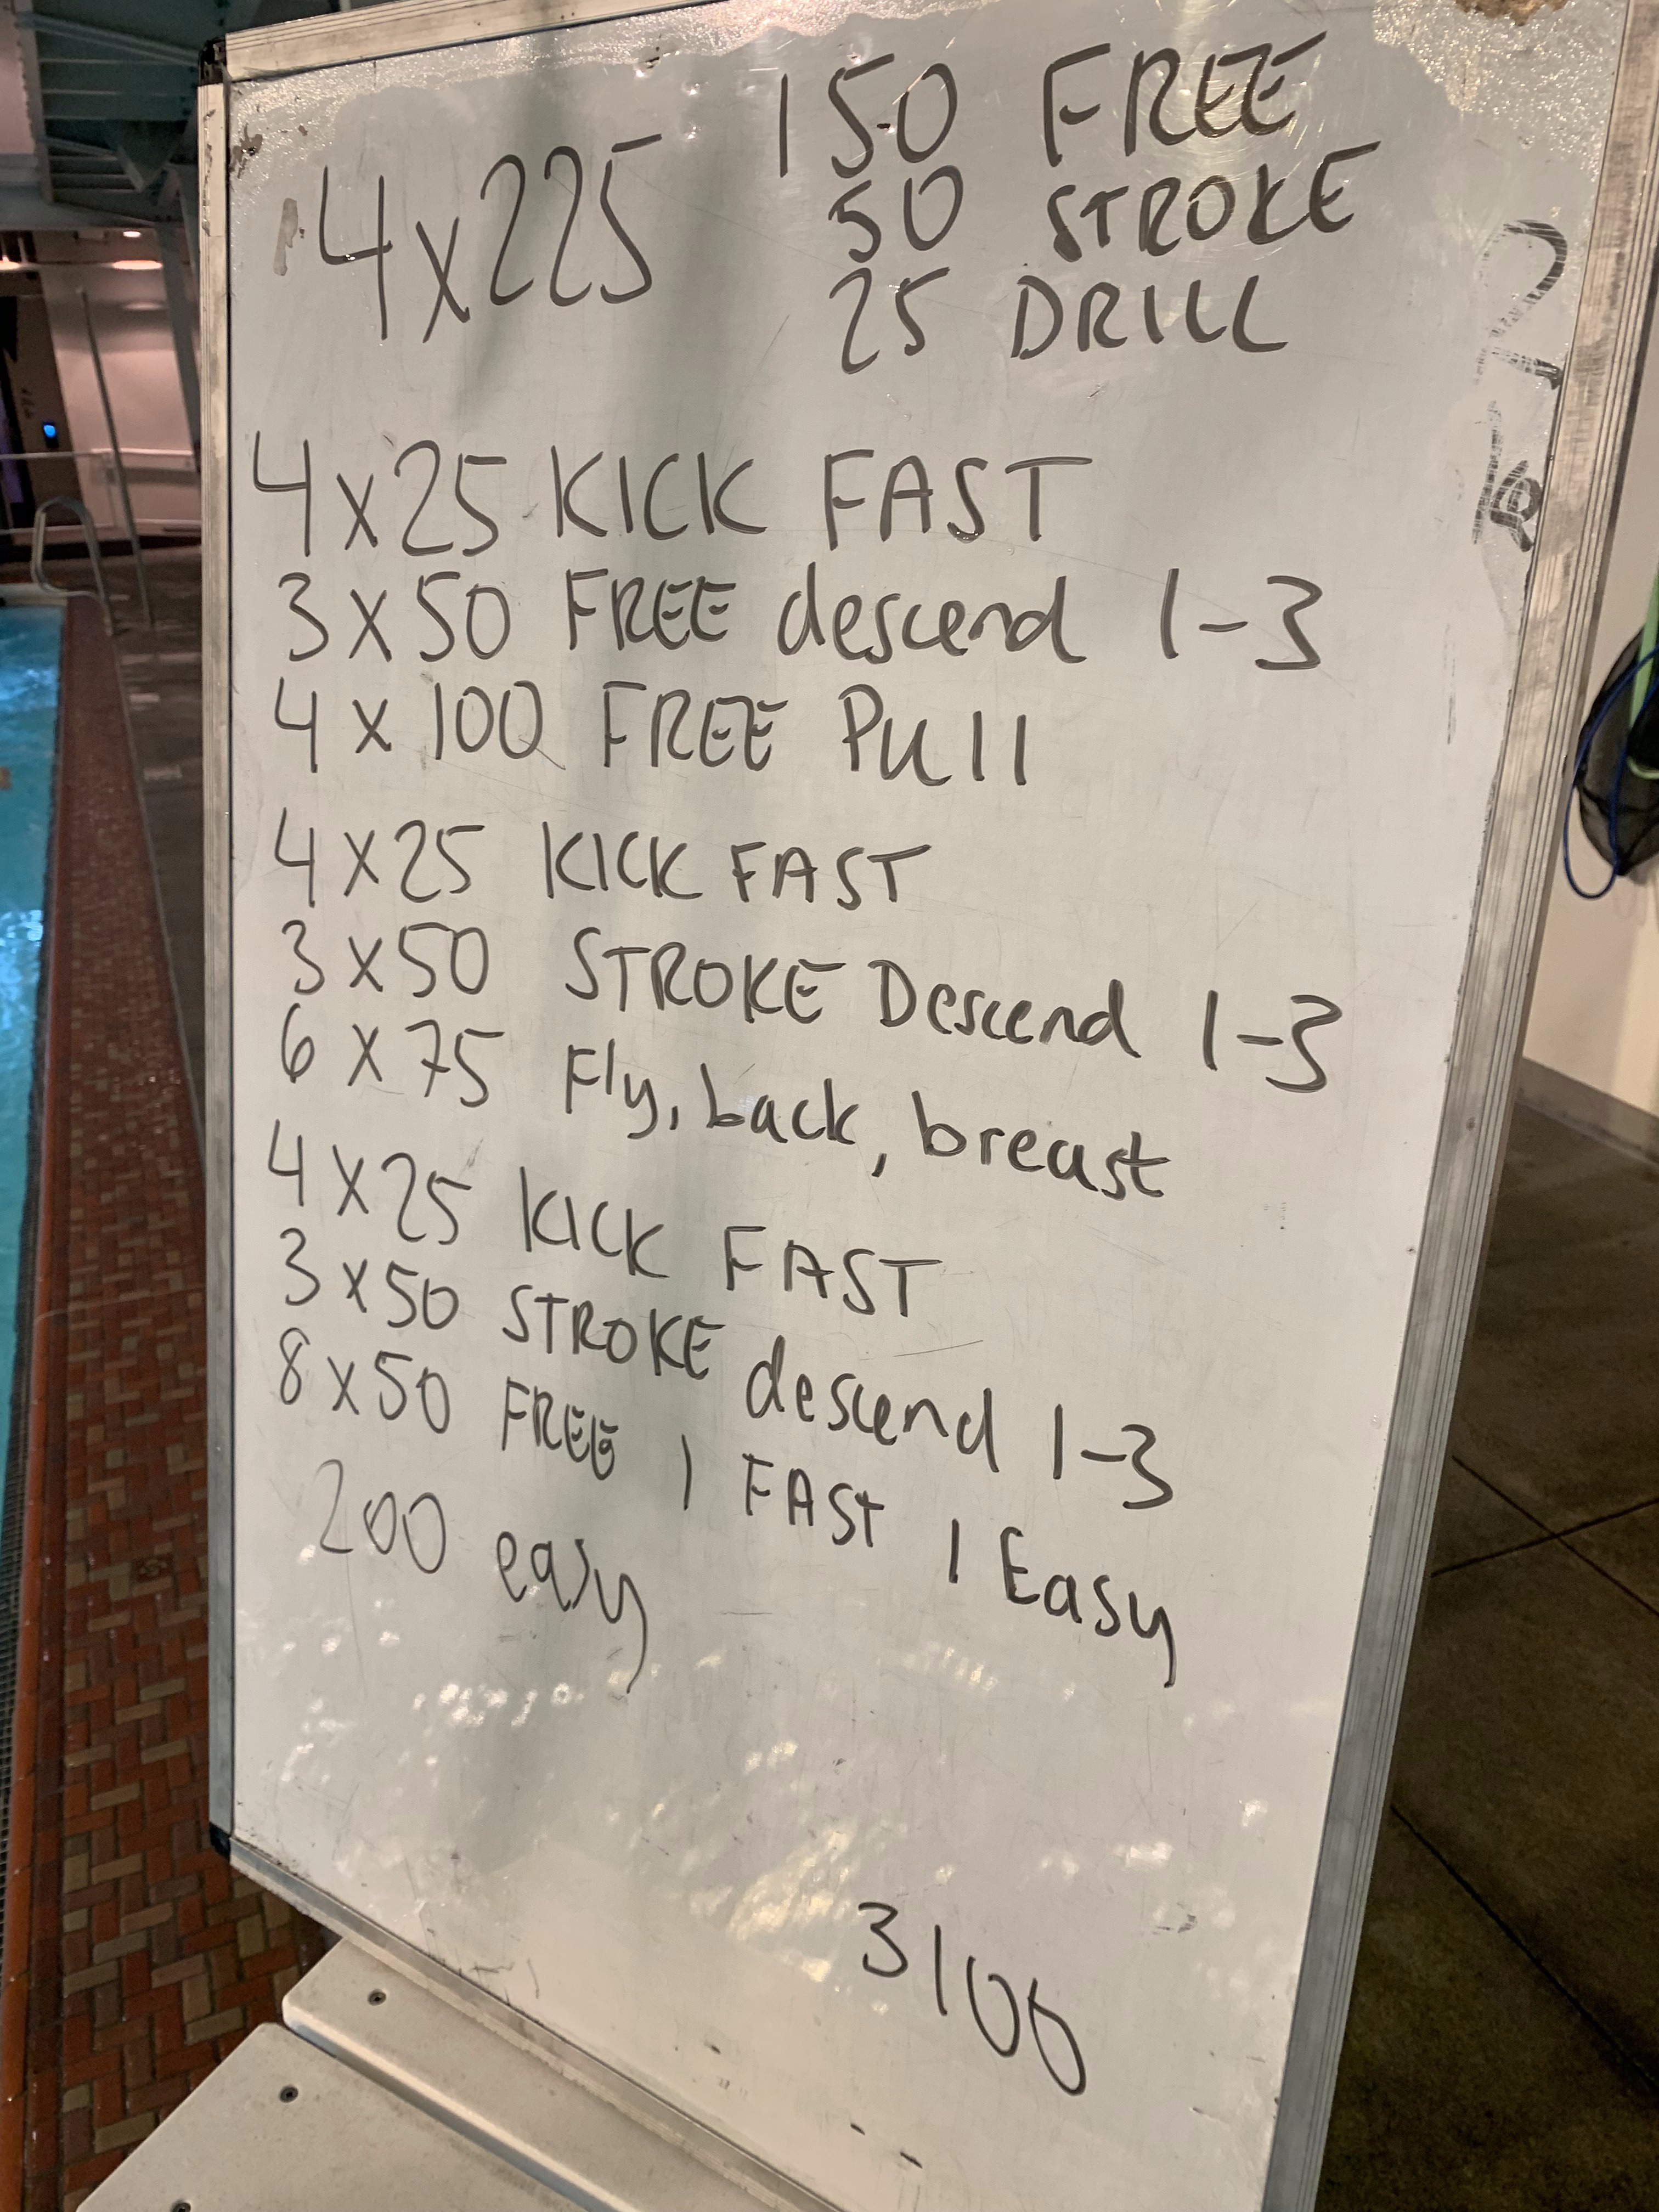 4x225
150 FREE
50 STROKE
25 DRILL
4x25 KICK FAST
3x50 FREE descend 1-3
4x100 FREE Pull
4x25 KICK FAST
3x50 STROKE Descend 1-3
6x75 Fly, back, breast
4x25 KICK FAST
3x50 STROKE descend 1-3
8x50 FREE 1 FAST 1 Easy
200 easy
3100
2